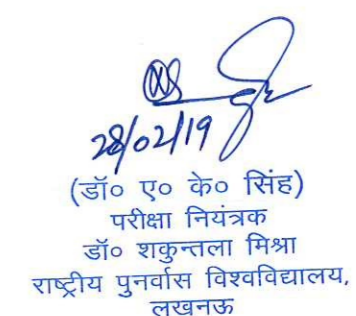 28/02/19
(डॉ० ए० के० सिंह)
परीक्षा नियंत्रक
डॉ० शकुन्तला मिश्रा
राष्ट्रीय पुनर्वास विश्वविद्यालय,
लखनऊ